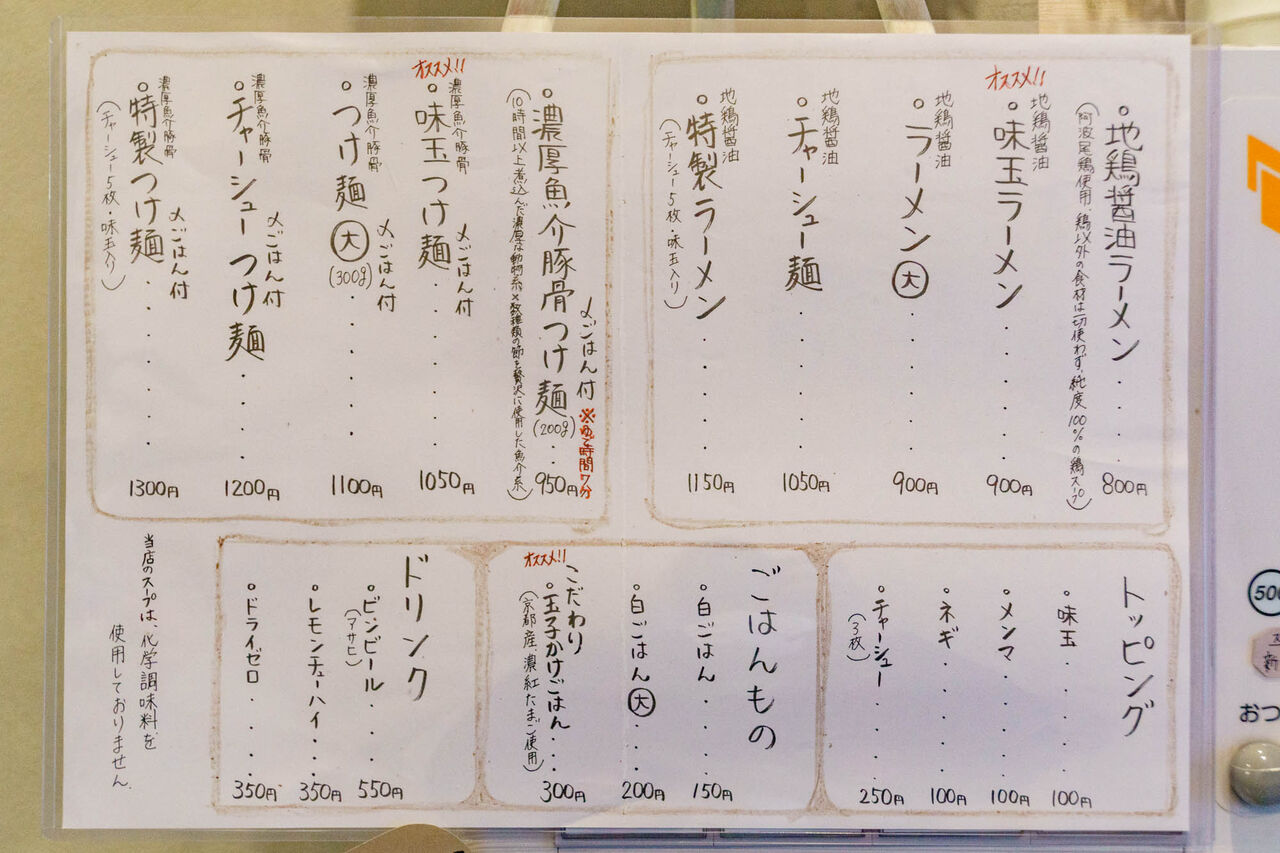 。地鶏醤油ラーメン・・・800円
(阿波尾鶏使用、鶏以外の食材は一切使わず、純度100%の鶏スープ)
オススメ!!
地鶏醤油
。味玉ラーメン・・・・・900円
地鶏醤油
。ラーメン大・・・・・900円
地鶏醤油
。チャーシュー麺・・・・・1050円
地鶏醤油
。特製ラーメン・・・・・1150円
(チャーシュー5枚・味玉入り)
〆ごはん付 ※ゆで時間7分
。濃厚魚介豚骨つけ麺(200g)・・950円
(10時間以上煮込んだ濃厚な動物系×数種類の節を贅沢に使用した魚介系)
オススメ!!
濃厚魚介豚骨 〆ごはん付
。味玉つけ麺・・・・・1050円
濃厚魚介豚骨 〆ごはん付
。つけ麺大(300g)・・・・・1100円
濃厚魚介豚骨 〆ごはん付
。チャーシューつけ麺・・・1200円
濃厚魚介豚骨 〆ごはん付
。特製つけ麺・・・・・・・1300円
(チャーシュー5枚・味玉入り)
トッピング
。味玉・・・・100円
。メンマ・・・・100円
。ネギ・・・・100円
。チャーシュー・・・・250円
(3枚)
ごはんもの
。白ごはん・・・・150円
。白ごはん大・・・200円
オススメ!!
こだわり
。玉子かけごはん・・・・300円
(京都産、濃紅たまご使用)
ドリンク
。ビンビール・・・550円
(アサヒ)
。レモンチューハイ・・・350円
。ドライゼロ・・・・350円
当店のスープは、化学調味料を
使用しておりません。
おつ